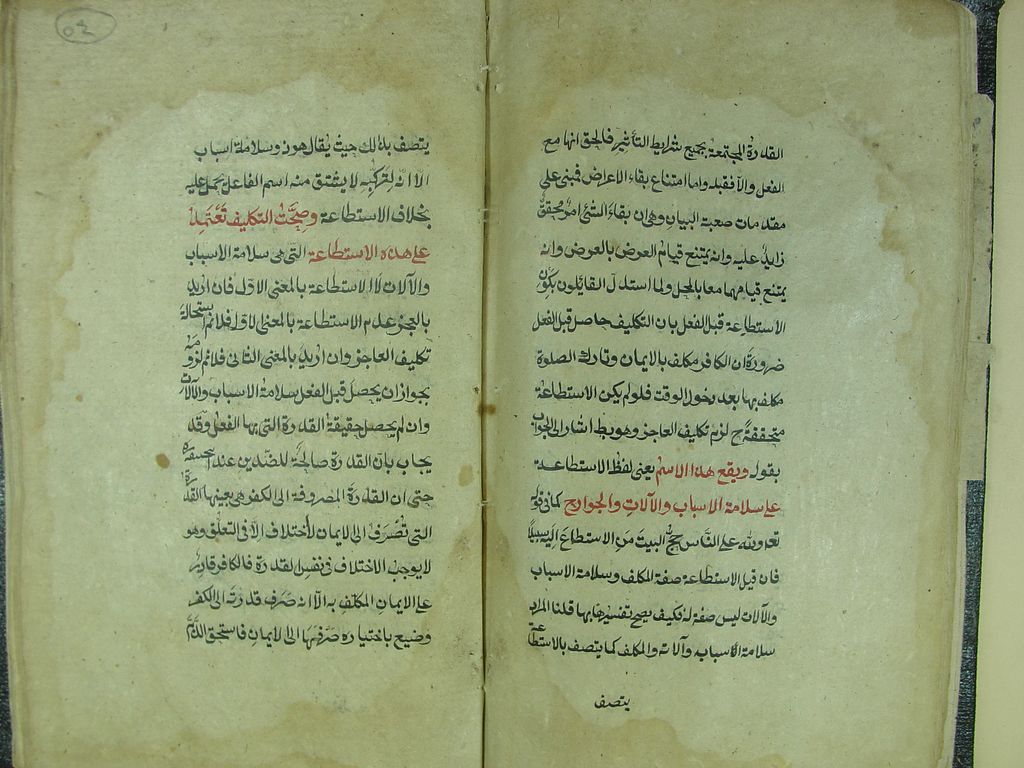 القدرة المجتمعة بجميع شرايط التأثير فالحق انها مع
الفعل والا فقبله واما امتناع بقاء الاعراض فبنى على
مقدمات صعبة البيان وهى ان بقاء الشئ امر محقق
زايد عليه وانه يمتنع قيام العرض بالعرض وانه
يمتنع قيامهما معا بالمحل ولما استدل القايلون بكون
الاستطاعة قبل الفعل بان التكليف حاصل قبل الفعل
ضرورة ان الكافر مكلف بالايمان وتارك الصلوة
مكلف بها بعد دخول الوقت فلو لم يكن الاستطاعة
متحققة ح لزم تكليف العاجز وهو بط اشار الى الجواب
بقوله ويقع هذا الاسم يعنى لفظ الاستطاعة
على سلامة الاسباب والآلات والجوارح كما فى قوله
تعه ولله على الناس حج البيت من الاستطاع اليه سبيلا
فان قيل الاستطاعة صفة المكلف وسلامة الاسباب
والآلات ليس صفة له فكيف يصح تفسيرها بها قلنا المراد
سلامة الاسباب وآلاته والمكلف كما يتصف بالاستطاعة
يتصف
٥٤
يتصف بذلك حيث يقال هو ذو سلامة اسباب
الا انه لتركبه لا يشتق منه اسم الفاعل يحمل عليه
بخلاف الاستطاعة وصحت التكليف تعتمد
على هذه الاستطاعة التى هى سلامة الاسباب
والآلات لا الاستطاعة بالمعنى الاول فان اريد
بالعجز عدم الاستطاعة بالمعنى الاول فلانم استحالة
تكليف العاجز وان اريد بالمعنى الثانى فلانم لزومه
بجواز ان يحصل قبل الفعل سلامة الاسباب والآلات
وان لم يحصل حقيقة القدرة التى بها الفعل وقد
يجاب بان القدرة صالحة للضدين عند ابحنيفة
حتى ان القدرة المصروفة الى الكفر هى بعينها القدرة
التى تصرف الى الايمان لاختلاف الا فى التعلق وهو
لايوجب الاختلاف فى نفس لقدرة فالكافر قادر
على الايمان المكلف به الا انه صرف قدرته الى الكفر
وضيع باختياره صرفها الى لايمان فاستحق الذم